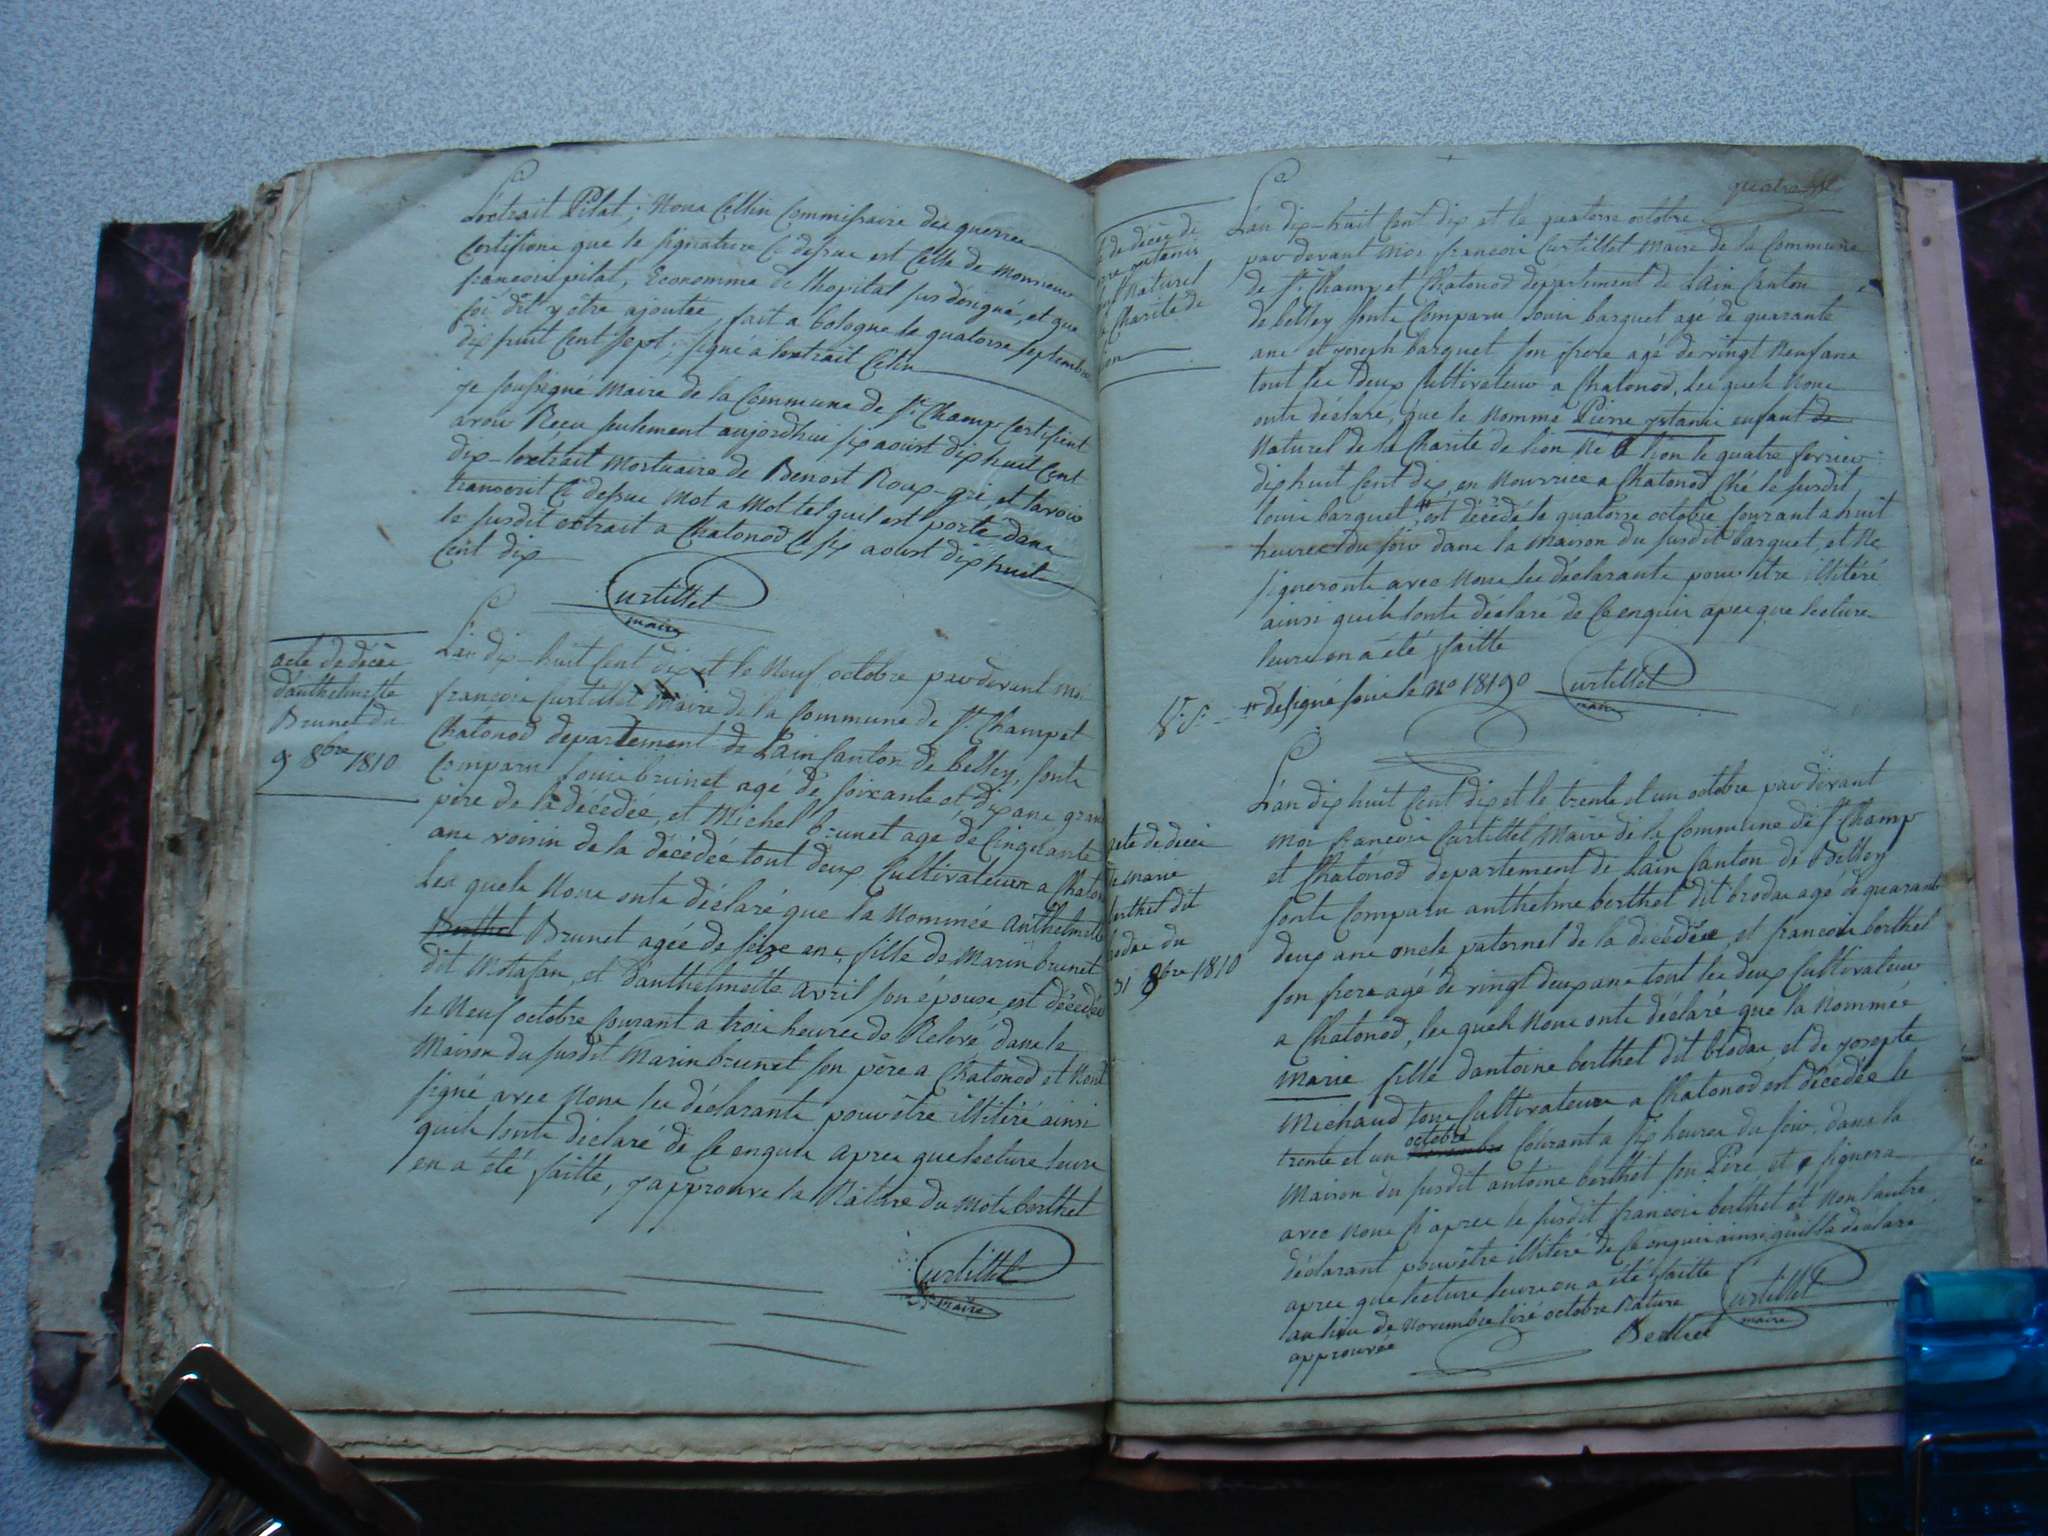 L'extrait Pilat; Nous Cellin Commissaire des guerres
Certifions que le signature Ci dessus est Celle de Monsieur
françois pilat, Economme de l'hopital sus désigné, et que
foi dit y être ajoutée, fait a bologne le quatorse septembre
dix huit Cent sept, signé a l'extrait Celin
je soussigné Maire de la Commune de St. Champ Certifient
avoir Reçu seulement aujordhui six aoust dix huit Cent
dix l'extrait Mortuaire de Benoit Roux-gré, et l'avoir
transcrit Ci dessus Mot a Mot tel quil est porté dans
le susdit extrait a Chatonod Ce six aoust dix huit
Cent dix
Curtillet
maire
acte de décès
d'anthelmette
Brunet du
9 8bre 1810
L'an dix-huit Cent dix et le Neuf octobre pardevant moi
françois Curtillet Maire de la Commune de St. Champ et
Chatonod departement de Lain Canton de belley, sonts
Comparu Louis brunet agé de soixante et dix ans grand
père de la décédée, et Michel brunet agé de Cinquante
ans voisin de la décédée tout deux Cultivateurs a Chatonod
Les quels Nous onts déclaré que la Nommée anthelmette
Berthet Brunet agée de seize ans, fille de Marin brunet
dit Motasan, et d'anthelmette avril son épouse, est décédée
le Neuf octobre Courant a trois heures de Relevé dans la
Maison du susdit Marin brunet son père a Chatonod et Nont
signé avec Nous les déclarants pour être illitéré ainsi
quils lonts déclaré de Ce enquis apres que lecture leurs
en a été faitte, j'approuve la Rature du Mots berthet
Curtillet
maire
de décès de
Naturel
Charité de
L'an dix-huit Cent dix et le quatorse octobre
par devant Moi françois Curtillet Maire de la Commune
de St. Champ et Chatonod departement de Lain Canton
de belley sonts Comparu Louis barquet agé de quarante
ans et joseph barquet son frere agé de vingt Neuf ans
tout les deux Cultivateurs a Chatonod, Les quels Nous
onts déclaré, que le Nommé Pierre ystanis enfant de
Naturel de la Charité de lion Né a lion le quatre fevrier
dix huit Cent dix, en Nourrice a Chatonod Ché le susdit
louis barquet # est décédé le quatorse octobre Courant a huit
heures du soir dans la Maison du susdit barquet, et Ne
signeronts avec Nous les déclarants pour être illitéré
ainsi quils lonts déclaré de Ce enquis apres que lecture
leurs en a été faitte
# désigné sous le No 18190
Curtillet
maire
acte de décès
de marie
berthet dit
brodas du
31 8bre 1810
L'an dix huit Cent dix et le trente et un octobre par devant
Moi françois Curtillet Maire de la Commune de St. Champ
et Chatonod departement de Lain Canton de Belley
sonts Comparu anthelme berthet dit brodas agé de quarante
deux ans oncle paternel de la décédée, et françois berthet
son frere agé de vingt deux ans tout les deux Cultivateurs
a Chatonod, les quels Nous onts déclaré que la Nommée
Marie fille dantoine berthet dit brodas, et de josepte
Michaud tous Cultivateurs a Chatonod est décédée le
octobre
trente et un Novembre Courant a six heures du soir, dans la
Maison du susdit antoine berthet son Père, et signera
avec Nous Ci apres le susdit françois berthet et Non l'autre
déclarant pour être illitéré de Ce enquis ainsi quil la déclaré
apres que lecture leurs en a été faitte
au lieu de Novembre liré octobre Rature
approuvée
Curtillet
maire
Berthet